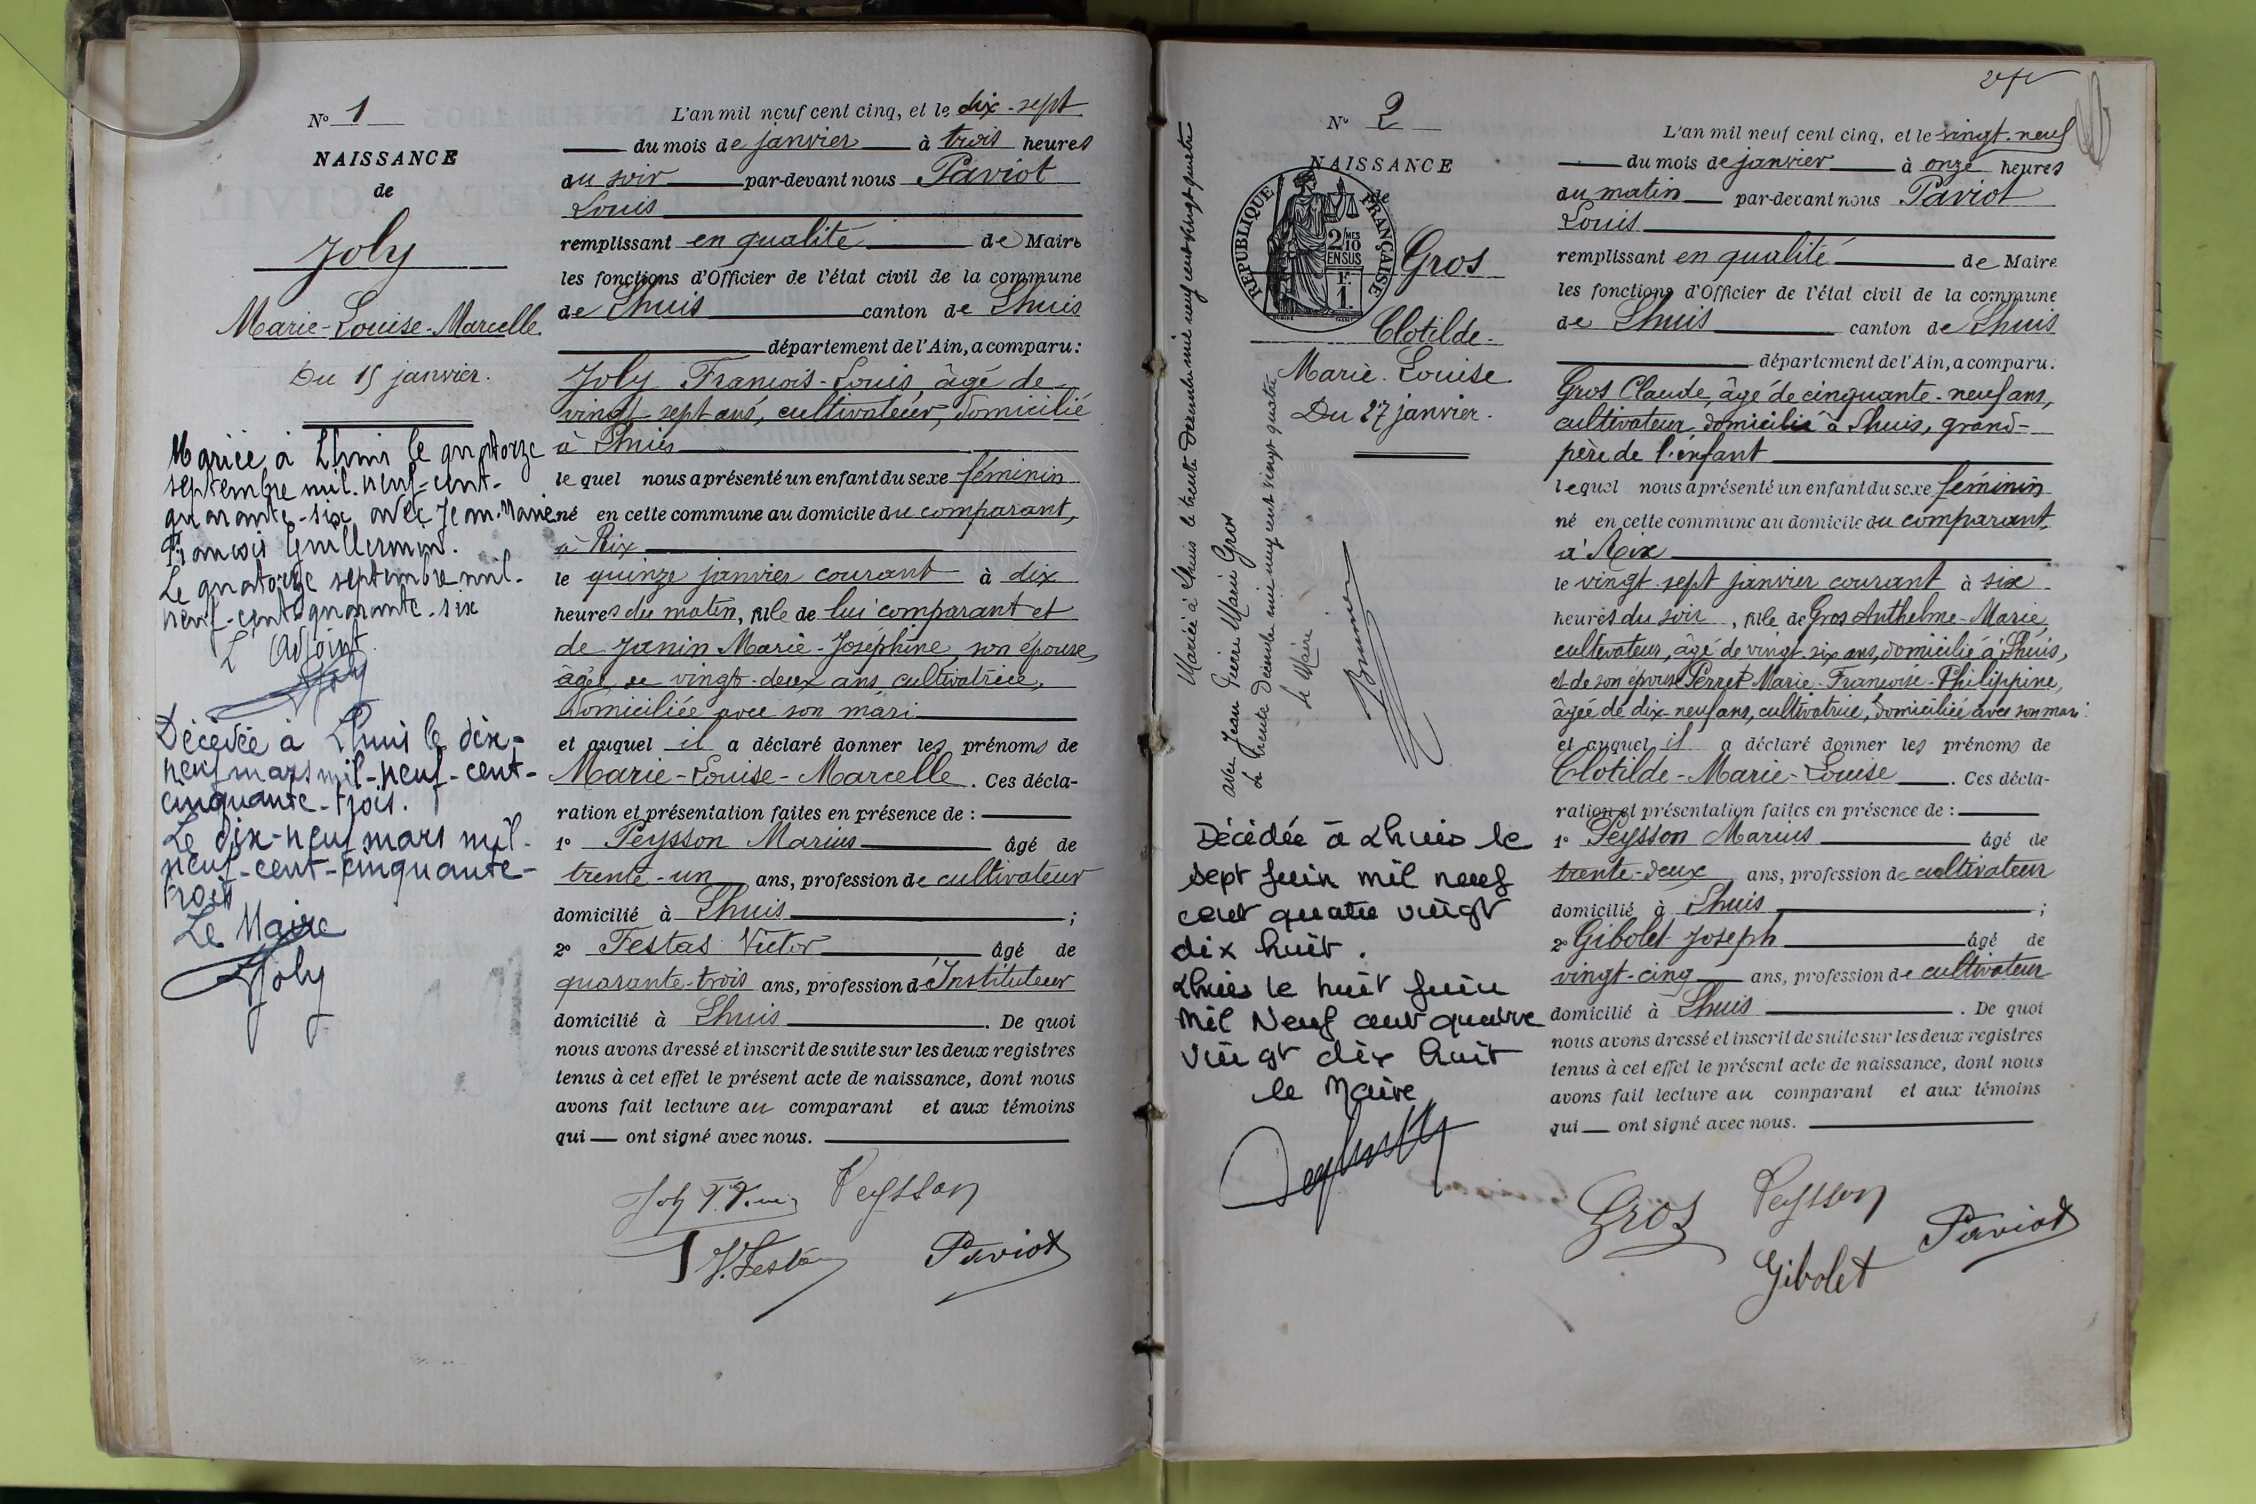 N° 1
NAISSANCE
de
Joly
Marie-Louise-Marcelle
Du 15 janvier.
Mariée à Lhuis le quatorze
septembre mil-neuf-cent-
quarante-six avec Jean-Marie
François Guillermin.
Le quatorze septembre mil-
neuf-cent-quarante-six
L'Adjoint
Joly
Décédée à Lhuis le dix-
neuf mars mil-neuf-cent-
cinquante-trois.
Le dix-neuf mars mil-
neuf-cent-cinquante-
trois
Le Maire
Joly
L'an mil neuf cent cinq, et le dix-sept
du mois de janvier à trois heures
du soir par-devant nous Paviot
Louis
remplissant en qualité de Maire
les fonctions d'Officier de l'état civil de la commune
de Lhuis canton de Lhuis
département de l'Ain, a comparu:
Joly François-Louis, âgé de
vingt-sept ans, cultivateur, domicilié
à Lhuis
lequel nous a présenté un enfant du sexe féminin
né en cette commune au domicile du comparant,
à Rix
le quinze janvier courant à dix
heures du matin, fille de lui comparant et
de Janin Marie-Joséphine, son épouse,
âgée de vingt-deux ans, cultivatrice,
domiciliée avec son mari
et auquel il a déclaré donner les prénoms de
Marie-Louise-Marcelle. Ces décla-
ration et présentation faites en présence de :
1° Peysson Marius âgé de
trente-un ans, profession de cultivateur
domicilié à Lhuis ;
2° Festas Victor âgé de
quarante-trois ans, profession d'Instituteur
domicilié à Lhuis. De quoi
nous avons dressé et inscrit de suite sur les deux registres
tenus à cet effet le présent acte de naissance, dont nous
avons fait lecture au comparant et aux témoins
qui — ont signé avec nous.
Joly Peysson
V. Festas Paviot
N° 2
NAISSANCE
de
RÉPUBLIQUE FRANÇAISE
2/10MES
EN SUS
1F.
1.
Gros
Clotilde-
Marie-Louise
Du 27 janvier.
Mariée à Lhuis le trente décembre mil neuf cent vingt quatre
avec Jean Pierre Marie Gros
Le trente décembre mil neuf cent vingt quatre
Le Maire
Décédée à Lhuis le
sept juin mil neuf
cent quatre vingt
dix huit.
Lhuis le huit juin
Mil Neuf cent quatre
vingt dix huit
le Maire
L'an mil neuf cent cinq, et le vingt-neuf
du mois de janvier à onze heures
du matin par-devant nous Paviot
Louis
remplissant en qualité de Maire
les fonctions d'Officier de l'état civil de la commune
de Lhuis canton de Lhuis
département de l'Ain, a comparu.
Gros Claude, âgé de cinquante-neuf ans,
cultivateur domicilié à Lhuis, grand-
père de l'enfant
lequel nous a présenté un enfant du sexe féminin
né en cette commune au domicile du comparant,
à Rix
le vingt-sept janvier courant à six
heures du soir, fille de Gros Anthelme-Marie,
cultivateur, âgé de vingt-six ans, domicilié à Lhuis,
et de son épouse Perret Marie-Françoise-Philippine,
âgée de dix-neuf ans, cultivatrice, domiciliée avec son mari.
et auquel il a déclaré donner les prénoms de
Clotilde-Marie-Louise. Ces décla-
ration et présentation faites en présence de :
1° Peysson Marius âgé de
trente-deux ans, profession de cultivateur
domicilié à Lhuis ;
2° Gibolet Joseph âgé de
vingt-cinq ans, profession de cultivateur
domicilié à Lhuis. De quoi
nous avons dressé et inscrit de suite sur les deux registres
tenus à cet effet le présent acte de naissance, dont nous
avons fait lecture au comparant et aux témoins
qui — ont signé avec nous.
Gros Peysson Paviot
Gibolet